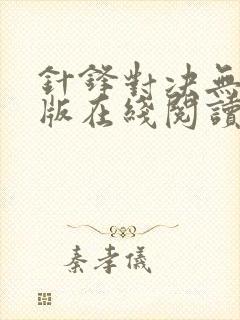 針鋒對決無
版在綫閱讀
秦孝儀